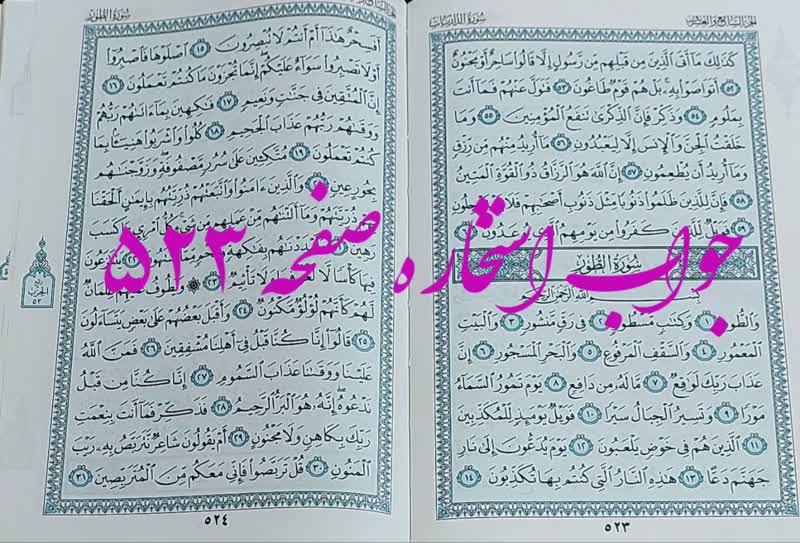 الجزء السابع والعشرون
سورة الذاريات
كَذَٰلِكَ مَآ أَتَى ٱلَّذِينَ مِن قَبْلِهِم مِّن رَّسُولٍ إِلَّا قَالُوا۟ سَاحِرٌ أَوْ مَجْنُونٌ
﴿٥٢﴾ أَتَوَاصَوْا۟ بِهِۦ ۚ بَلْ هُمْ قَوْمٌ طَاغُونَ ﴿٥٣﴾ فَتَوَلَّ عَنْهُمْ فَمَآ أَنتَ
بِمَلُومٍ ﴿٥٤﴾ وَذَكِّرْ فَإِنَّ ٱلذِّكْرَىٰ تَنفَعُ ٱلْمُؤْمِنِينَ ﴿٥٥﴾ وَمَا
خَلَقْتُ ٱلْجِنَّ وَٱلْإِنسَ إِلَّا لِيَعْبُدُونِ ﴿٥٦﴾ مَآ أُرِيدُ مِنْهُم مِّن رِّزْقٍ
وَمَآ أُرِيدُ أَن يُطْعِمُونِ ﴿٥٧﴾ إِنَّ ٱللَّهَ هُوَ ٱلرَّزَّاقُ ذُو ٱلْقُوَّةِ ٱلْمَتِينُ
﴿٥٨﴾ فَإِنَّ لِلَّذِينَ ظَلَمُوا۟ ذَنُوبًا مِّثْلَ ذَنُوبِ أَصْحَٰبِهِمْ فَلَا
﴿٥٩﴾ فَوَيْلٌ لِّلَّذِينَ كَفَرُوا۟ مِن يَوْمِهِمُ ٱلَّذِى يُوعَدُونَ ﴿٦٠﴾
سُورَةُ الطُّورِ
بِسْمِ ٱللَّهِ ٱلرَّحْمَٰنِ ٱلرَّحِيمِ
وَٱلطُّورِ ﴿١﴾ وَكِتَٰبٍ مَّسْطُورٍ ﴿٢﴾ فِى رَقٍّ مَّنشُورٍ ﴿٣﴾ وَٱلْبَيْتِ
ٱلْمَعْمُورِ ﴿٤﴾ وَٱلسَّقْفِ ٱلْمَرْفُوعِ ﴿٥﴾ وَٱلْبَحْرِ ٱلْمَسْجُورِ ﴿٦﴾ إِنَّ
عَذَابَ رَبِّكَ لَوَٰقِعٌ ﴿٧﴾ مَّا لَهُۥ مِن دَافِعٍ ﴿٨﴾ يَوْمَ تَمُورُ ٱلسَّمَآءُ
مَوْرًا ﴿٩﴾ وَتَسِيرُ ٱلْجِبَالُ سَيْرًا ﴿١٠﴾ فَوَيْلٌ يَوْمَئِذٍ لِّلْمُكَذِّبِينَ
﴿١١﴾ ٱلَّذِينَ هُمْ فِى خَوْضٍ يَلْعَبُونَ ﴿١٢﴾ يَوْمَ يُدَعُّونَ إِلَىٰ نَارِ
جَهَنَّمَ دَعًّا ﴿١٣﴾ هَٰذِهِ ٱلنَّارُ ٱلَّتِى كُنتُم بِهَا تُكَذِّبُونَ ﴿١٤﴾
٥٢٣
جواب استخاره صفحه ۵۲۳
سورة الطور
أَفَسِحْرٌ هَٰذَآ أَمْ أَنتُمْ لَا تُبْصِرُونَ ﴿١٥﴾ ٱصْلَوْهَا فَٱصْبِرُوٓا۟
أَوْ لَا تَصْبِرُوا۟ سَوَآءٌ عَلَيْكُمْ ۖ إِنَّمَا تُجْزَوْنَ مَا كُنتُمْ تَعْمَلُونَ ﴿١٦﴾
إِنَّ ٱلْمُتَّقِينَ فِى جَنَّٰتٍ وَنَعِيمٍ ﴿١٧﴾ فَٰكِهِينَ بِمَآ ءَاتَىٰهُمْ رَبُّهُمْ
وَوَقَىٰهُمْ رَبُّهُمْ عَذَابَ ٱلْجَحِيمِ ﴿١٨﴾ كُلُوا۟ وَٱشْرَبُوا۟ هَنِيٓـًٔۢا بِمَا
كُنتُمْ تَعْمَلُونَ ﴿١٩﴾ مُتَّكِـِٔينَ عَلَىٰ سُرُرٍ مَّصْفُوفَةٍ ۖ وَزَوَّجْنَٰهُم
بِحُورٍ عِينٍ ﴿٢٠﴾ وَٱلَّذِينَ ءَامَنُوا۟ وَٱتَّبَعَتْهُمْ ذُرِّيَّتُهُم بِإِيمَٰنٍ أَلْحَقْنَا
بِهِمْ ذُرِّيَّتَهُمْ وَمَآ أَلَتْنَٰهُم مِّنْ عَمَلِهِم مِّن شَىْءٍ ۚ كُلُّ ٱمْرِئٍۭ بِمَا كَسَبَ
رَهِينٌ ﴿٢١﴾ وَأَمْدَدْنَٰهُم بِفَٰكِهَةٍ وَلَحْمٍ مِّمَّا يَشْتَهُونَ ﴿٢٢﴾ يَتَنَٰزَعُونَ
فِيهَا كَأْسًا لَّا لَغْوٌ فِيهَا وَلَا تَأْثِيمٌ ﴿٢٣﴾ وَيَطُوفُ عَلَيْهِمْ غِلْمَانٌ
لَّهُمْ كَأَنَّهُمْ لُؤْلُؤٌ مَّكْنُونٌ ﴿٢٤﴾ وَأَقْبَلَ بَعْضُهُمْ عَلَىٰ بَعْضٍ يَتَسَآءَلُونَ
﴿٢٥﴾ قَالُوٓا۟ إِنَّا كُنَّا قَبْلُ فِىٓ أَهْلِنَا مُشْفِقِينَ ﴿٢٦﴾ فَمَنَّ ٱللَّهُ
عَلَيْنَا وَوَقَىٰنَا عَذَابَ ٱلسَّمُومِ ﴿٢٧﴾ إِنَّا كُنَّا مِن قَبْلُ
نَدْعُوهُ ۖ إِنَّهُۥ هُوَ ٱلْبَرُّ ٱلرَّحِيمُ ﴿٢٨﴾ فَذَكِّرْ فَمَآ أَنتَ بِنِعْمَتِ
رَبِّكَ بِكَاهِنٍ وَلَا مَجْنُونٍ ﴿٢٩﴾ أَمْ يَقُولُونَ شَاعِرٌ نَّتَرَبَّصُ بِهِۦ رَيْبَ
ٱلْمَنُونِ ﴿٣٠﴾ قُلْ تَرَبَّصُوا۟ فَإِنِّى مَعَكُم مِّنَ ٱلْمُتَرَبِّصِينَ ﴿٣١﴾
٥٢٤